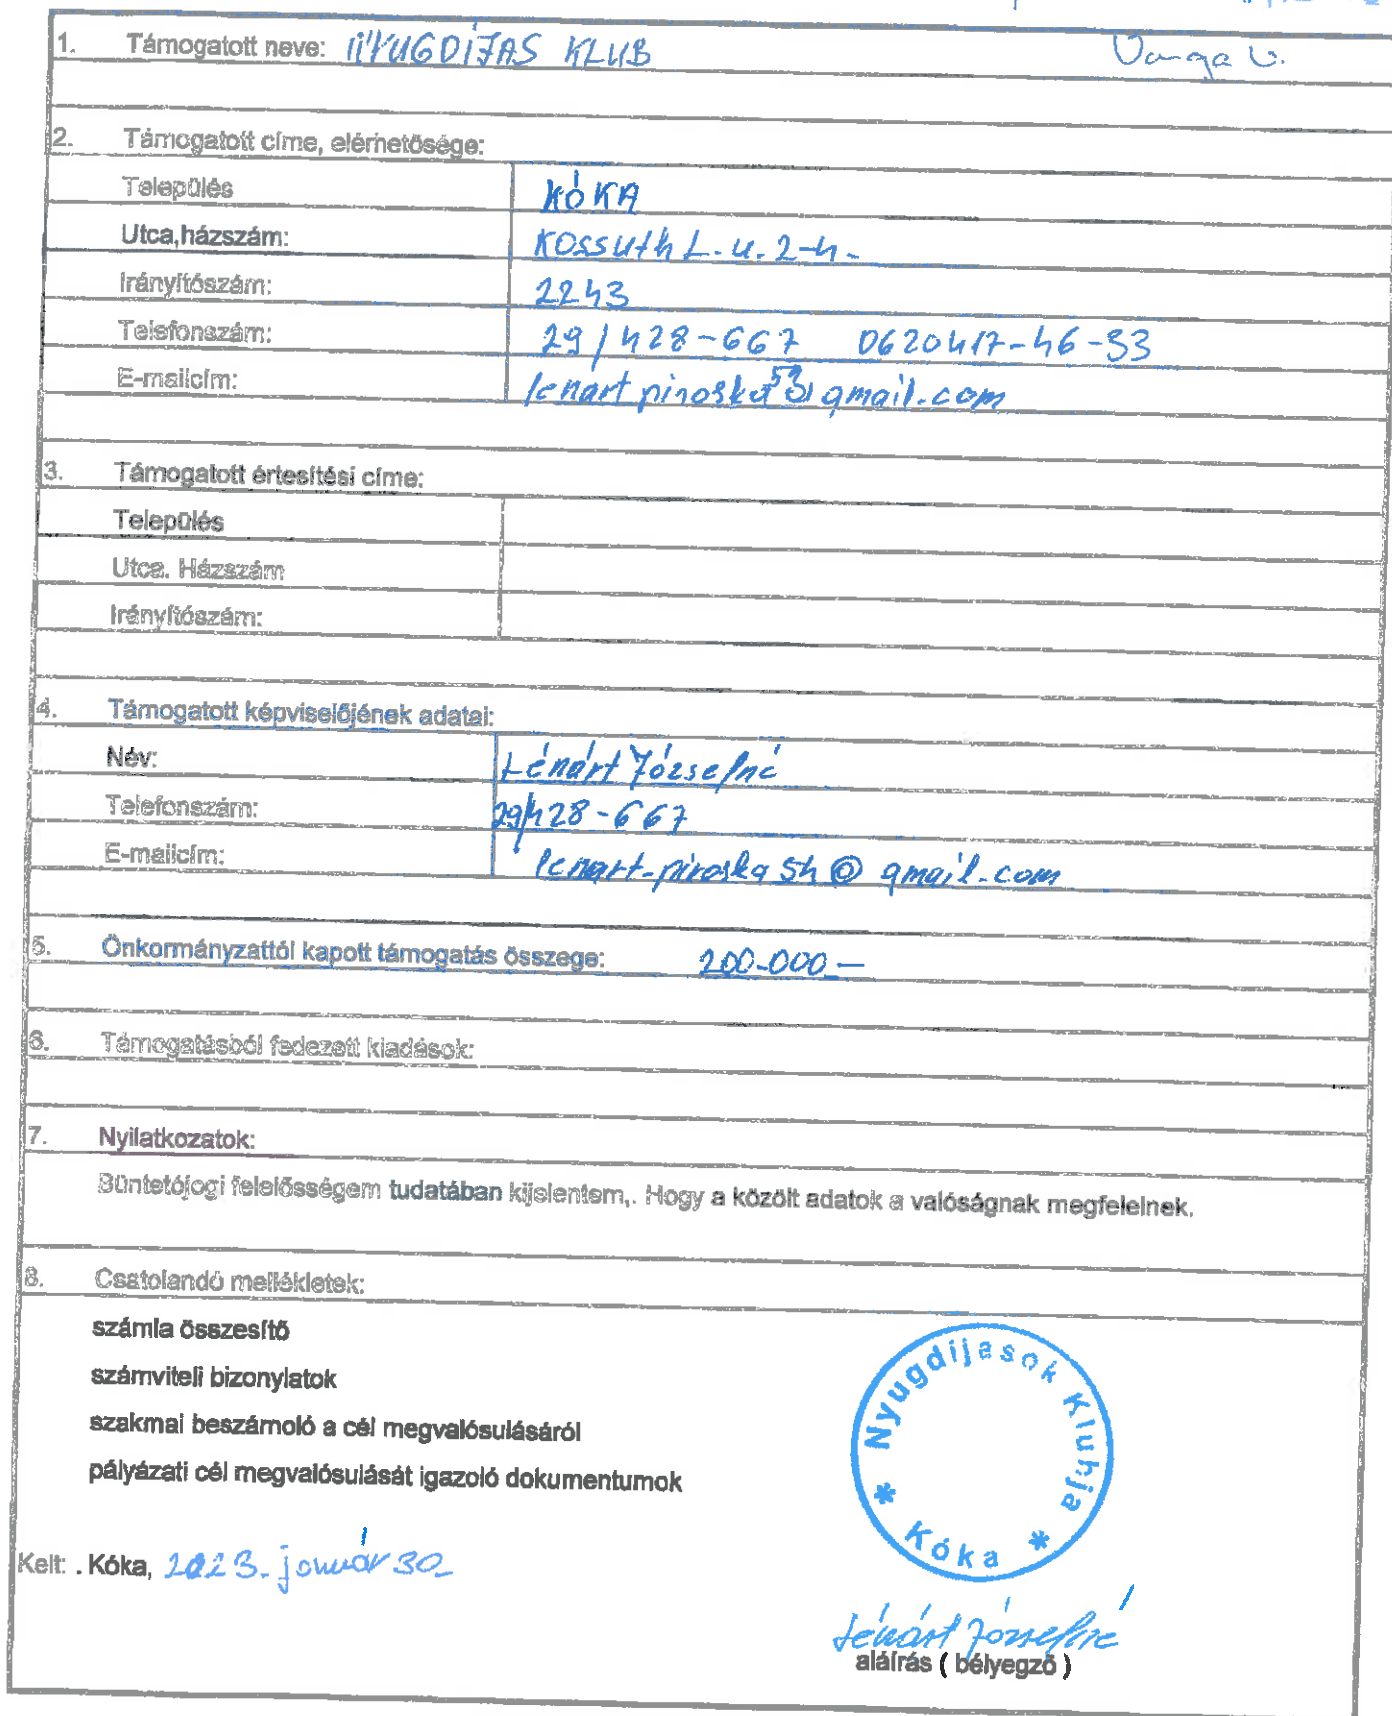 Varga V.
1. Támogatott neve: NYUGDIJAS KLUB
2. Támogatott címe, elérhetősége:
Település KÓKA
Utca,házszám: Kossuth L. u. 2-4.
Irányítószám: 2243
Telefonszám: 29/428-667 0620417-46-33
E-mailcím: lenart piroska @ gmail.com
3. Támogatott értesítési címe:
Település
Utca. Házszám
Irányítószám:
4. Támogatott képviselőjének adatai:
Név: Lénárt Józsefné
Telefonszám: 29/428-667
E-mailcím: lenart-piroska 54 @ gmail.com
5. Önkormányzattól kapott támogatás összege: 200.000 —
6. Támogatásból fedezett kiadások:
7. Nyilatkozatok:
Büntetőjogi felelősségem tudatában kijelentem,. Hogy a közölt adatok a valóságnak megfelelnek.
8. Csatolandó mellékletek:
számla összesítő
számviteli bizonylatok
szakmai beszámoló a cél megvalósulásáról
pályázati cél megvalósulását igazoló dokumentumok
* Nyugdijasok Klubja *
Kóka
Kelt: . Kóka, 2023. január 30.
Lénárt Józsefné
aláírás ( bélyegző )